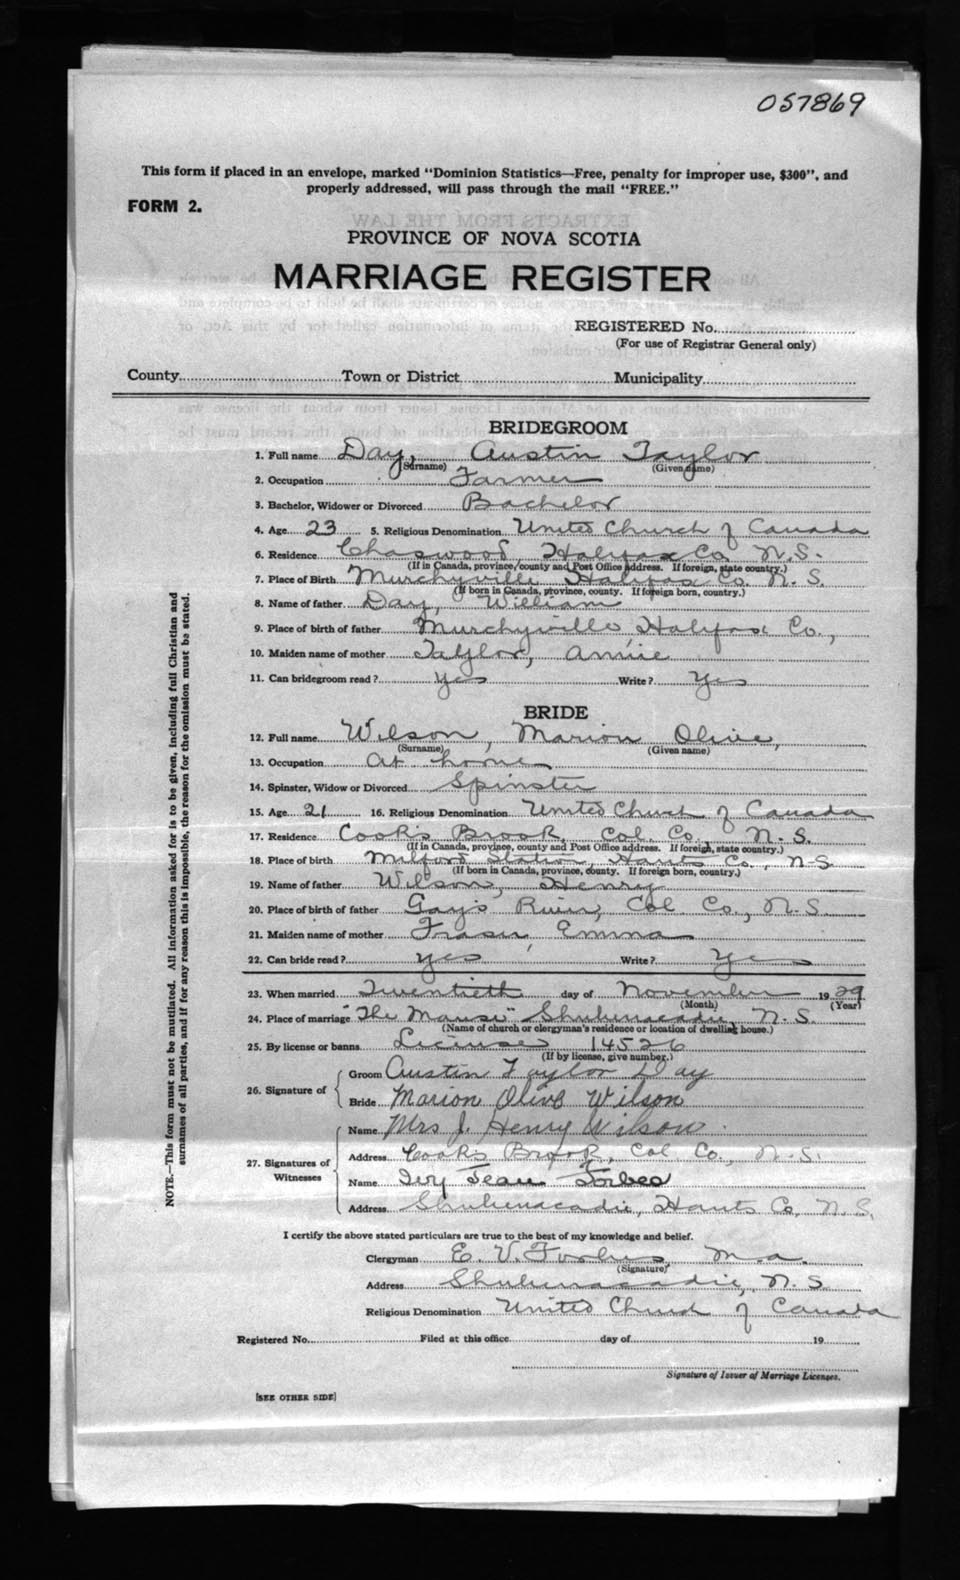 057869
This form if placed in an envelope, marked "Dominion Statistics—Free, penalty for improper use, $300", and
properly addressed, will pass through the mail "FREE."
FORM 2.
PROVINCE OF NOVA SCOTIA
MARRIAGE REGISTER
REGISTERED No.
(For use of Registrar General only)
County Town or District Municipality
BRIDEGROOM
1. Full name Day, Austin Taylor
(Surname) (Given name)
2. Occupation Farmer
3. Bachelor, Widower or Divorced Bachelor
4. Age 23 5. Religious Denomination United Church of Canada
6. Residence Chaswood, Halifax Co. N.S.
(If in Canada, province, county and Post Office address. If foreign, state country.)
7. Place of Birth Murchyville Halifax Co. N.S.
(If born in Canada, province, county. If foreign born, country.)
8. Name of father Day, William
9. Place of birth of father Murchyville, Halifax Co.,
10. Maiden name of mother Taylor, Annie
11. Can bridegroom read? yes Write? yes
BRIDE
12. Full name Wilson, Marion Olive,
(Surname) (Given name)
13. Occupation At home
14. Spinster, Widow or Divorced Spinster
15. Age 21 16. Religious Denomination United Church of Canada
17. Residence Cook's Brook, Col. Co., N.S.
(If in Canada, province, county and Post Office address. If foreign, state country.)
18. Place of birth Milford Station, Hants Co., N.S
(If born in Canada, province, county. If foreign born, country.)
19. Name of father Wilson, Henry
20. Place of birth of father Gay's River, Col. Co., N.S.
21. Maiden name of mother Fraser, Emma
22. Can bride read? yes Write? Yes
23. When married Twentieth day of November 1929
(Month) (Year)
24. Place of marriage "The Manse" Shubenacadie, N.S.
(Name of church or clergyman's residence or location of dwelling house.)
25. By license or banns License 14526
(If by license, give number.)
26. Signature of Groom Austin Taylor Day
Bride Marion Olive Wilson
27. Signatures of Witnesses Name Mrs J. Henry Wilson
Address Cook's Brook, Col. Co., N.S.
Name Ivy Jean Forbes
Address Shubenacadie, Hants Co. N.S.
I certify the above stated particulars are true to the best of my knowledge and belief.
Clergyman E. V. Forbes, M.A.
(Signature)
Address Shubenacadie, N.S.
Religious Denomination United Church of Canada
Registered No. Filed at this office day of 19
Signature of Issuer of Marriage Licenses.
[SEE OTHER SIDE]
NOTE.—This form must not be mutilated. All information asked for is to be given, including full Christian and
surnames of all parties, and if for any reason this is impossible, the reason for the omission must be stated.